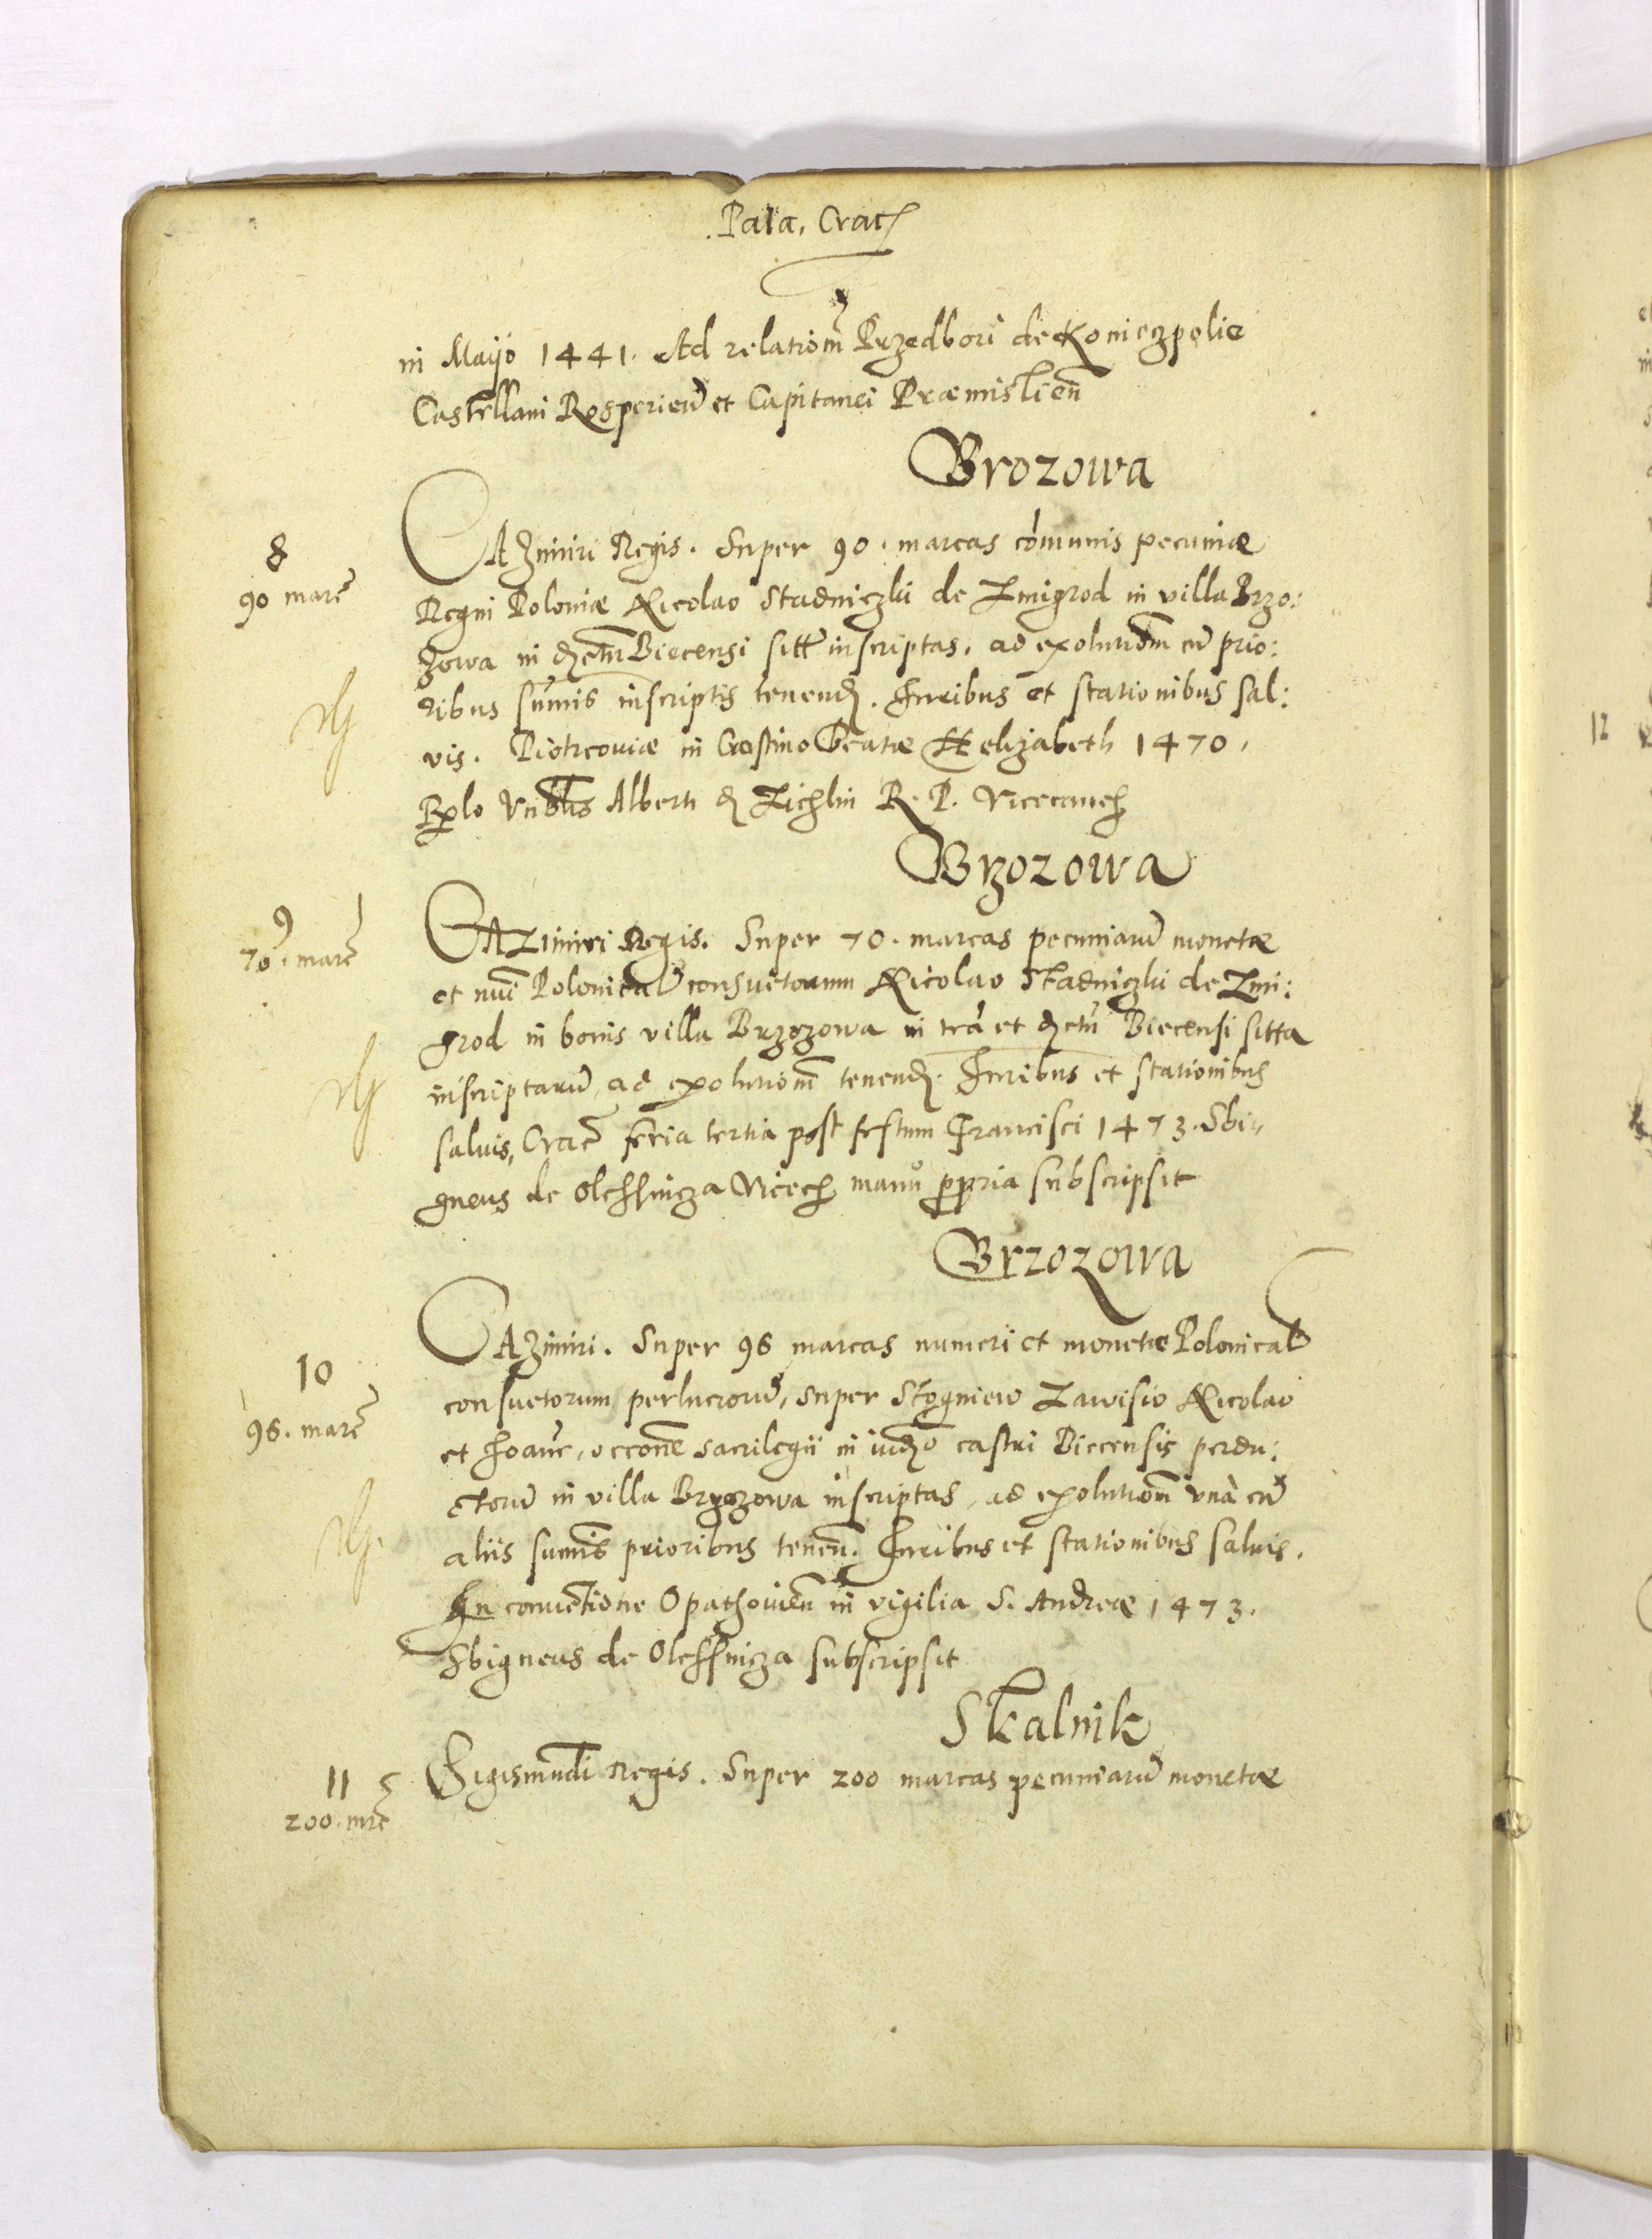 Pala. Crac
in Mayo 1441. Ad relationem Przedbori de Konieczpolie
Castellani Rosperien et Capitanei Præmislien
Brozowa
8
90 marc
CAzimiri Regis. Super 90. marcas comunis pecuniæ
Regni Poloniæ Nicolao Stadniczki de Zmigrod in villa Brzo:
zowa in dictu Biecensi sitt inscriptas. ad exolutionem cu prio:
ribus sumis inscriptis tenend. Juribus et stationibus sal:
vis. Piotrcoviæ in Crastino Beatæ Helizabeth 1470.
Rlo Vnblis Alberti de Zichlin R. P. Vicecanc
Brzozowa
9
70. marc
CAZimiri Regis. Super 70. marcas pecuniaru monetæ
et nui Polonical consuetorum Nicolao Stadniczki de Zmi:
grod in bonis villa Brzozowa in tra et dictu Biecensi sitta
inscriptaru ad exolutionem tenend. Juribus et stationibus
salvis, Crac feria tertia post festum Francisci 1473. Sbi
gneus de Olessnicza Vicec manu ppria subscripsit
Brzozowa
10
96. marc
CAzimiri. Super 96 marcas numeri et monetæ Polonical
consuetorum perlucroru, super Stogniew Zawisio Nicolao
et Joane, occone sacrilegii in iudo castri Biecensis perdu:
ctoru in villa Brzozowa inscriptas, ad exolutionem una cu
aliis sumis prioribus tenen. Juribus et stationibus salvis.
In conventione Opathovien in vigilia S. Andreæ 1473.
Sbigneus de Olessnicza subscripsit
Skalnik
11
200. mrc
Sigismundi Regis. Super 200 marcas pecuniaru monetæ
12